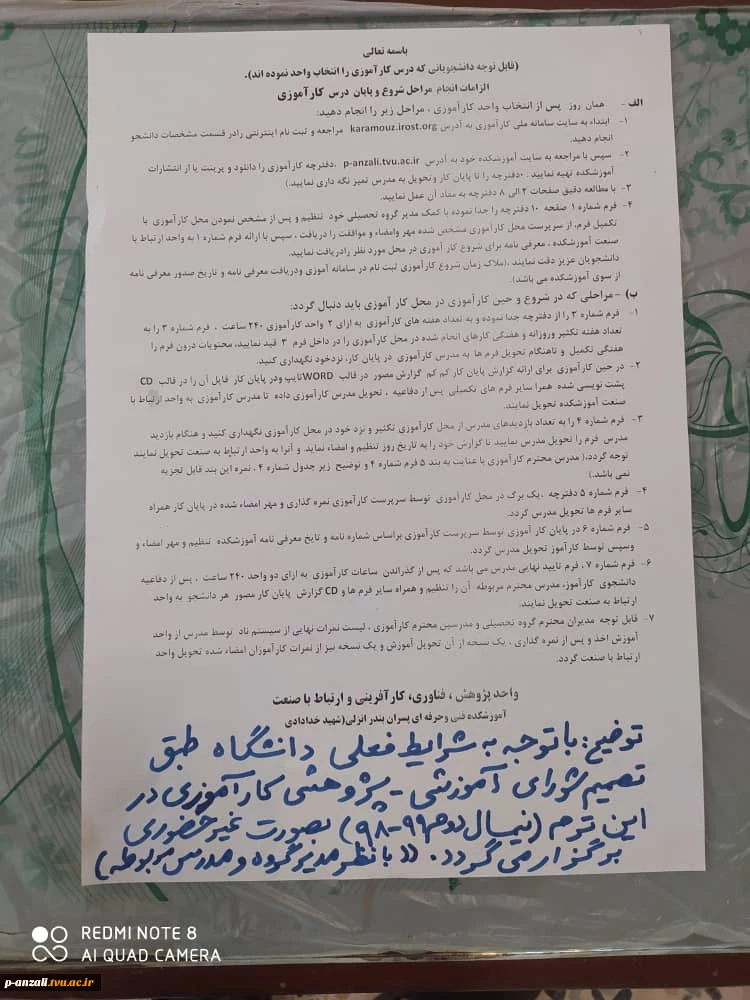 ۱
باسمه تعالی
(قابل توجه دانشجویانی که درس کارآموزی را انتخاب واحد نموده اند).
الزامات انجام مراحل شروع و پایان درس کارآموزی
الف - همان روز پس از انتخاب واحد کارآموزی ، مراحل زیر را انجام دهید:
۱- ابتداء به سایت سامانه ملی کارآموزی به آدرس karamouz.irost.org مراجعه و ثبت نام اینترنتی رادر قسمت مشخصات دانشجو
انجام دهید.
۲- سپس با مراجعه به سایت آموزشکده خود به آدرس p-anzali.tvu.ac.ir ،دفترچه کارآموزی را دانلود و پرینت یا از انتشارات
آموزشکده تهیه نمایید . (دفترچه را تا پایان کار وتحویل به مدرس تمیز نگه داری نمایید.)
۳- با مطالعه دقیق صفحات ۲ الی ۸ دفترچه به مفاد آن عمل نمایید.
۴- فرم شماره ۱ صفحه ۱۰ دفترچه را جدا نموده با کمک مدیر گروه تحصیلی خود تنظیم و پس از مشخص نمودن محل کارآموزی با
تکمیل فرم، از سرپرست محل کارآموزی مشخص شده مهر وامضاء و موافقت را دریافت ، سپس با ارائه فرم شماره ۱ به واحد ارتباط با
صنعت آموزشکده ، معرفی نامه برای شروع کار آموزی در محل مورد نظر رادریافت نمایید.
دانشجویان عزیز دقت نمایند ،(ملاک زمان شروع کارآموزی ثبت نام در سامانه آموزی ودریافت معرفی نامه و تاریخ صدور معرفی نامه
از سوی آموزشکده می باشد).
ب) - مراحلی که در شروع و حین کارآموزی در محل کار آموزی باید دنبال گردد:
۱- فرم شماره ۳ را از دفترچه جدا نموده و به تعداد هفته های کارآموزی به ازای ۲ واحد کارآموزی ۲۴۰ ساعت ، فرم شماره ۳ را به
تعداد هفته تکثیر وروزانه و هفتگی کارهای انجام شده در محل کارآموزی را در داخل فرم ۳ قید نمایید، محتویات درون فرم را
هفتگی تکمیل و تاهنگام تحویل فرم ها به مدرس کارآموزی در پایان کار، نزدخود نگهداری کنید.
۲- در حین کارآموزی برای ارائه گزارش پایان کار کم کم گزارش مصور در قالب WORDتایپ ودر پایان کار فایل آن را در قالب CD
پشت نویسی شده همرا سایر فرم های تکمیلی پس از دفاعیه ، تحویل مدرس کارآموزی داده تا مدرس کارآموزی به واحد ارتباط با
صنعت آموزشکده تحویل نمایند.
۳- فرم شماره ۴ را به تعداد بازدیدهای مدرس از محل کارآموزی تکثیر و نزد خود در محل کارآموزی نگهداری کنید و هنگام بازدید
مدرس فرم را تحویل مدرس نمایید تا گزارش خود را به تاریخ روز تنظیم و امضاء نماید. و آنرا به واحد ارتباط به صنعت تحویل نمایند
توجه گردد،( مدرس محترم کارآموزی با عنایت به بند ۵ فرم شماره ۴ و توضیح زیر جدول شماره ۴ ، نمره این بند قابل تجزیه
نمی باشد.)
۴- فرم شماره ۵ دفترچه ،یک برگ در محل کارآموزی توسط سرپرست کارآموزی نمره گذاری و مهر امضاء شده در پایان کار همراه
سایر فرم ها تحویل مدرس گردد.
۵- فرم شماره ۶ در پایان کار آموزی توسط سرپرست کارآموزی براساس شماره نامه و تایخ معرفی نامه آموزشکده تنظیم و مهر امضاء و
وسپس توسط کارآموز تحویل مدرس گردد.
۶- فرم شماره ۷ ، فرم تایید نهایی مدرس می باشد که پس از گذراندن ساعات کارآموزی به ازای دو واحد ۲۴۰ ساعت ، پس از دفاعیه
دانشجوی کارآموز، مدرس محترم مربوطه آن را تنظیم و همراه سایر فرم ها و CD گزارش پایان کار مصور هر دانشجو به واحد
ارتباط به صنعت تحویل نمایند.
۷- قابل توجه مدیران محترم گروه تحصیلی و مدرسین محترم کارآموزی ، لیست نمرات نهایی از سیستم ناد توسط مدرس از واحد
آموزش اخذ و پس از نمره گذاری ، یک نسخه از آن تحویل آموزش و یک نسخه نیز از نمرات کارآموزان امضاء شده تحویل واحد
ارتباط با صنعت گردد.
واحد پژوهش ، فناوری، کارآفرینی و ارتباط با صنعت
آموزشکده فنی وحرفه ای پسران بندر انزلی(شهید خدادادی
توضیح: با توجه به شرایط فعلی دانشگاه طبق
تصمیم شورای آموزشی - پژوهشی کارآموزی در
این ترم (نیمسال دوم ۹۹-۹۸) بصورت غیرحضوری
برگزار می گردد. ((با نظر مدیر گروه و مدرس مربوطه)
REDMI NOTE 8
AI QUAD CAMERA
p-anzali.tvu.ac.ir